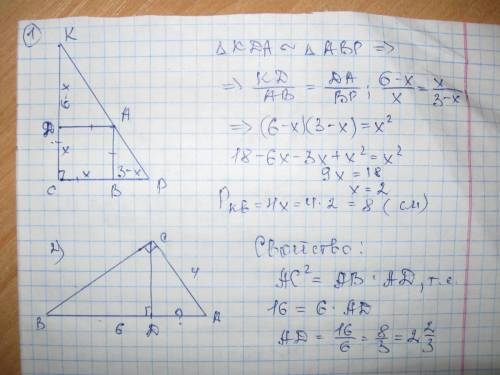 1
K
6-x
D
A
x
C
x
B
3-x
P
Δ KDA ~ Δ ABP =>
=> KD/AB = DA/BP ; (6-x)/x = x/(3-x)
=> (6-x)(3-x) = x²
18-6x-3x+x² = x²
9x = 18
x = 2
Pкв = 4x = 4·2 = 8 (см)
2)
C
4
B
6
D
?
A
Свойство:
AC² = AB · AD, т.е.
16 = 6 · AD
AD = 16/6 = 8/3 = 2 2/3